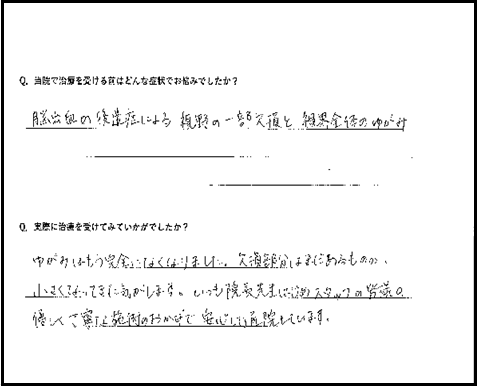 Q. 当院で治療を受ける前はどんな症状でお悩みでしたか？
脳出血の後遺症による 視野の一部欠損と 視界全体のゆがみ
Q. 実際に治療を受けてみていかがでしたか？
ゆがみはもう完全になくなりました。欠損部分はまだあるものの、
小さくなってきた気がします。いつも院長先生はじめスタッフの皆様の
優しく丁寧な施術のおかげで安心して通院しています。